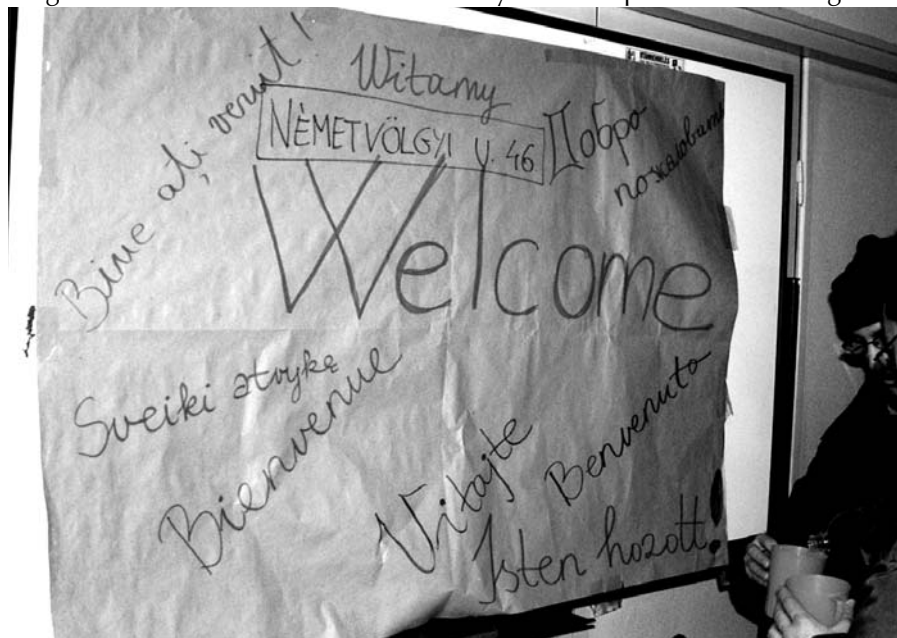 Bine ați venit!
Witamy
NÉMETVÖLGYI U. 46
Добро
пожаловать
Welcome
Sveiki atvykę
Bienvenue
Vitajte
Benvenuto
Isten hozott!